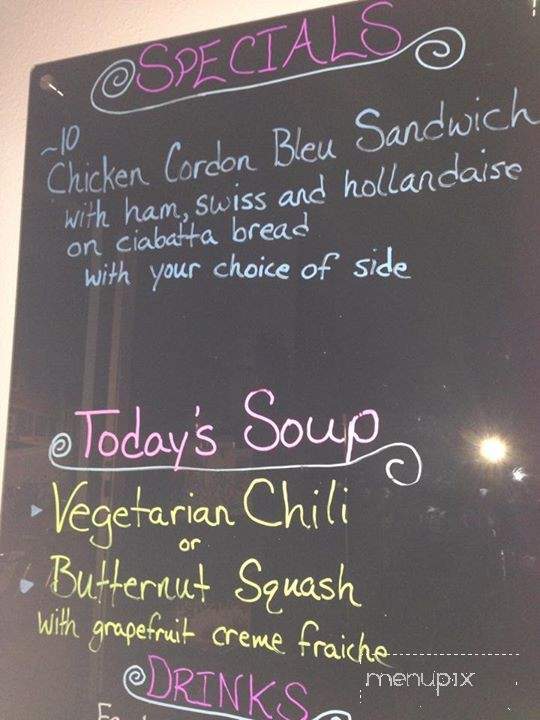 SPECIALS
~10
Chicken Cordon Bleu Sandwich
with ham, swiss and hollandaise
on ciabatta bread
with your choice of side
Today's Soup
Vegetarian Chili
or
Butternut Squash
with grapefruit creme fraiche
menupix
DRINKS